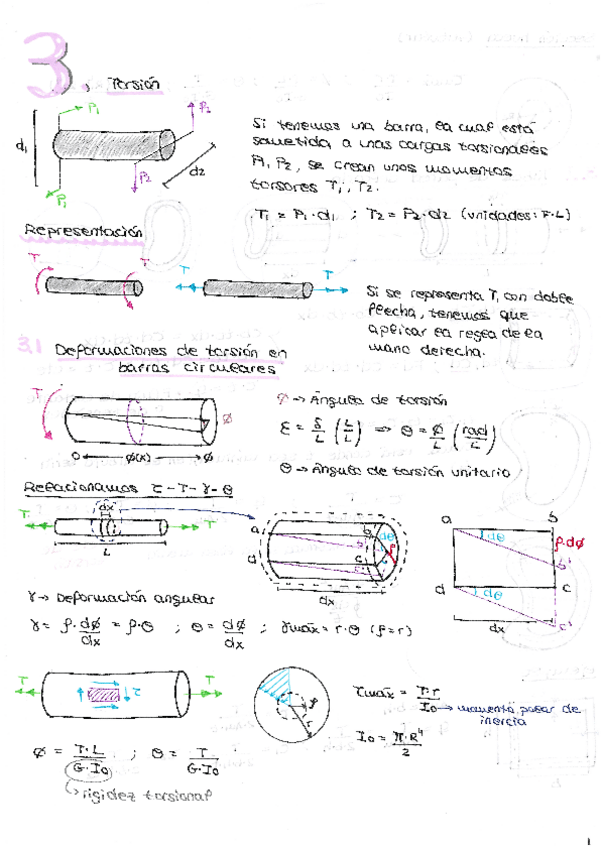 3. Torsión
P₁ P₂
d₁ d₂
P₁ P₂
Si tenemos una barra, la cual está
sometida a unas cargas torsionales
P₁, P₂, se crean unos momentos
torsores T₁, T₂.
T₁ = P₁·d₁ ; T₂ = P₂·d₂ (unidades: F·L)
Representación
T T T T
Si se representa T, con doble
flecha, tenemos que
aplicar la regla de la
mano derecha.
3.1 Deformaciones de torsión en
barras circulares
T ϕ
0 ϕ(x) ϕ
φ → Ángulo de torsión
ε = δ/L (L/L) ⇒ θ = ϕ/L (rad/L)
θ → Ángulo de torsión unitario
Relacionamos τ - T - γ - θ
T dx T
L
a b dθ ρ
d c
dx
a b
dθ ρ·dϕ
b'
d dθ c
c'
dx
γ → Deformación angular
γ = ρ·dϕ/dx = ρ·θ ; θ = dϕ/dx ; γmáx = r·θ (ρ=r)
T τ T
ρ r
τmáx = T·r/I₀ → momento polar de
inercia
I₀ = π·R⁴/2
ϕ = T·L/G·I₀ ; θ = T/G·I₀
rigidez torsional
1